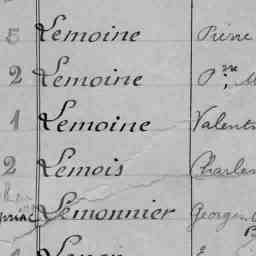 5 Lemoine Pierre
2 Lemoine P.re
1 Lemoine Valent
2 Lemois Charles
Lemonnier Georges